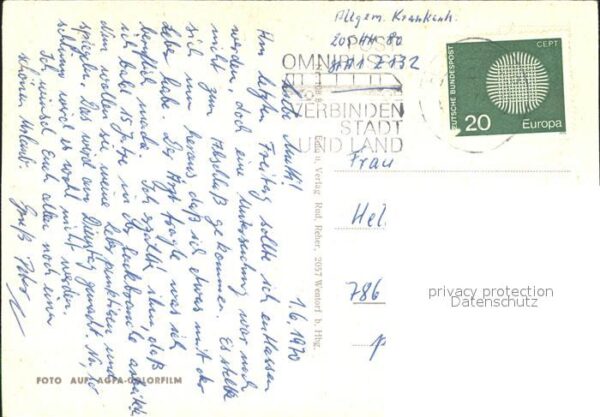 Allgem. Krankenh.
OMNIBUSSE
VERBINDEN
STADT
UND LAND
DEUTSCHE BUNDESPOST
CEPT
20
Europa
Frau
Hel.
786
privacy protection
Datenschutz
1.6.1970
Liebe
Am letzten Freitag sollte ich entlassen
werden, doch eine Untersuchung war noch
nicht zum Abschluß gekommen. Es stellte
sich heraus daß ich etwas mit der
Leber habe. Der Arzt fragte was ich
beruflich mache. Ich erzählte ihm, daß
ich bald 15 Jahre in der arbeite
dann wollen sie meine Leber punktieren und
spiegeln. Das wird am Dienstag gemacht. Na, so
schlimm wird es wohl nicht werden.
Ich wünsche Euch allen noch einen
schönen Urlaub.
Gruß Peter
Verlag Rud. Reher, 2057 Wentorf b. Hbg.
FOTO AUF AGFA-COLORFILM